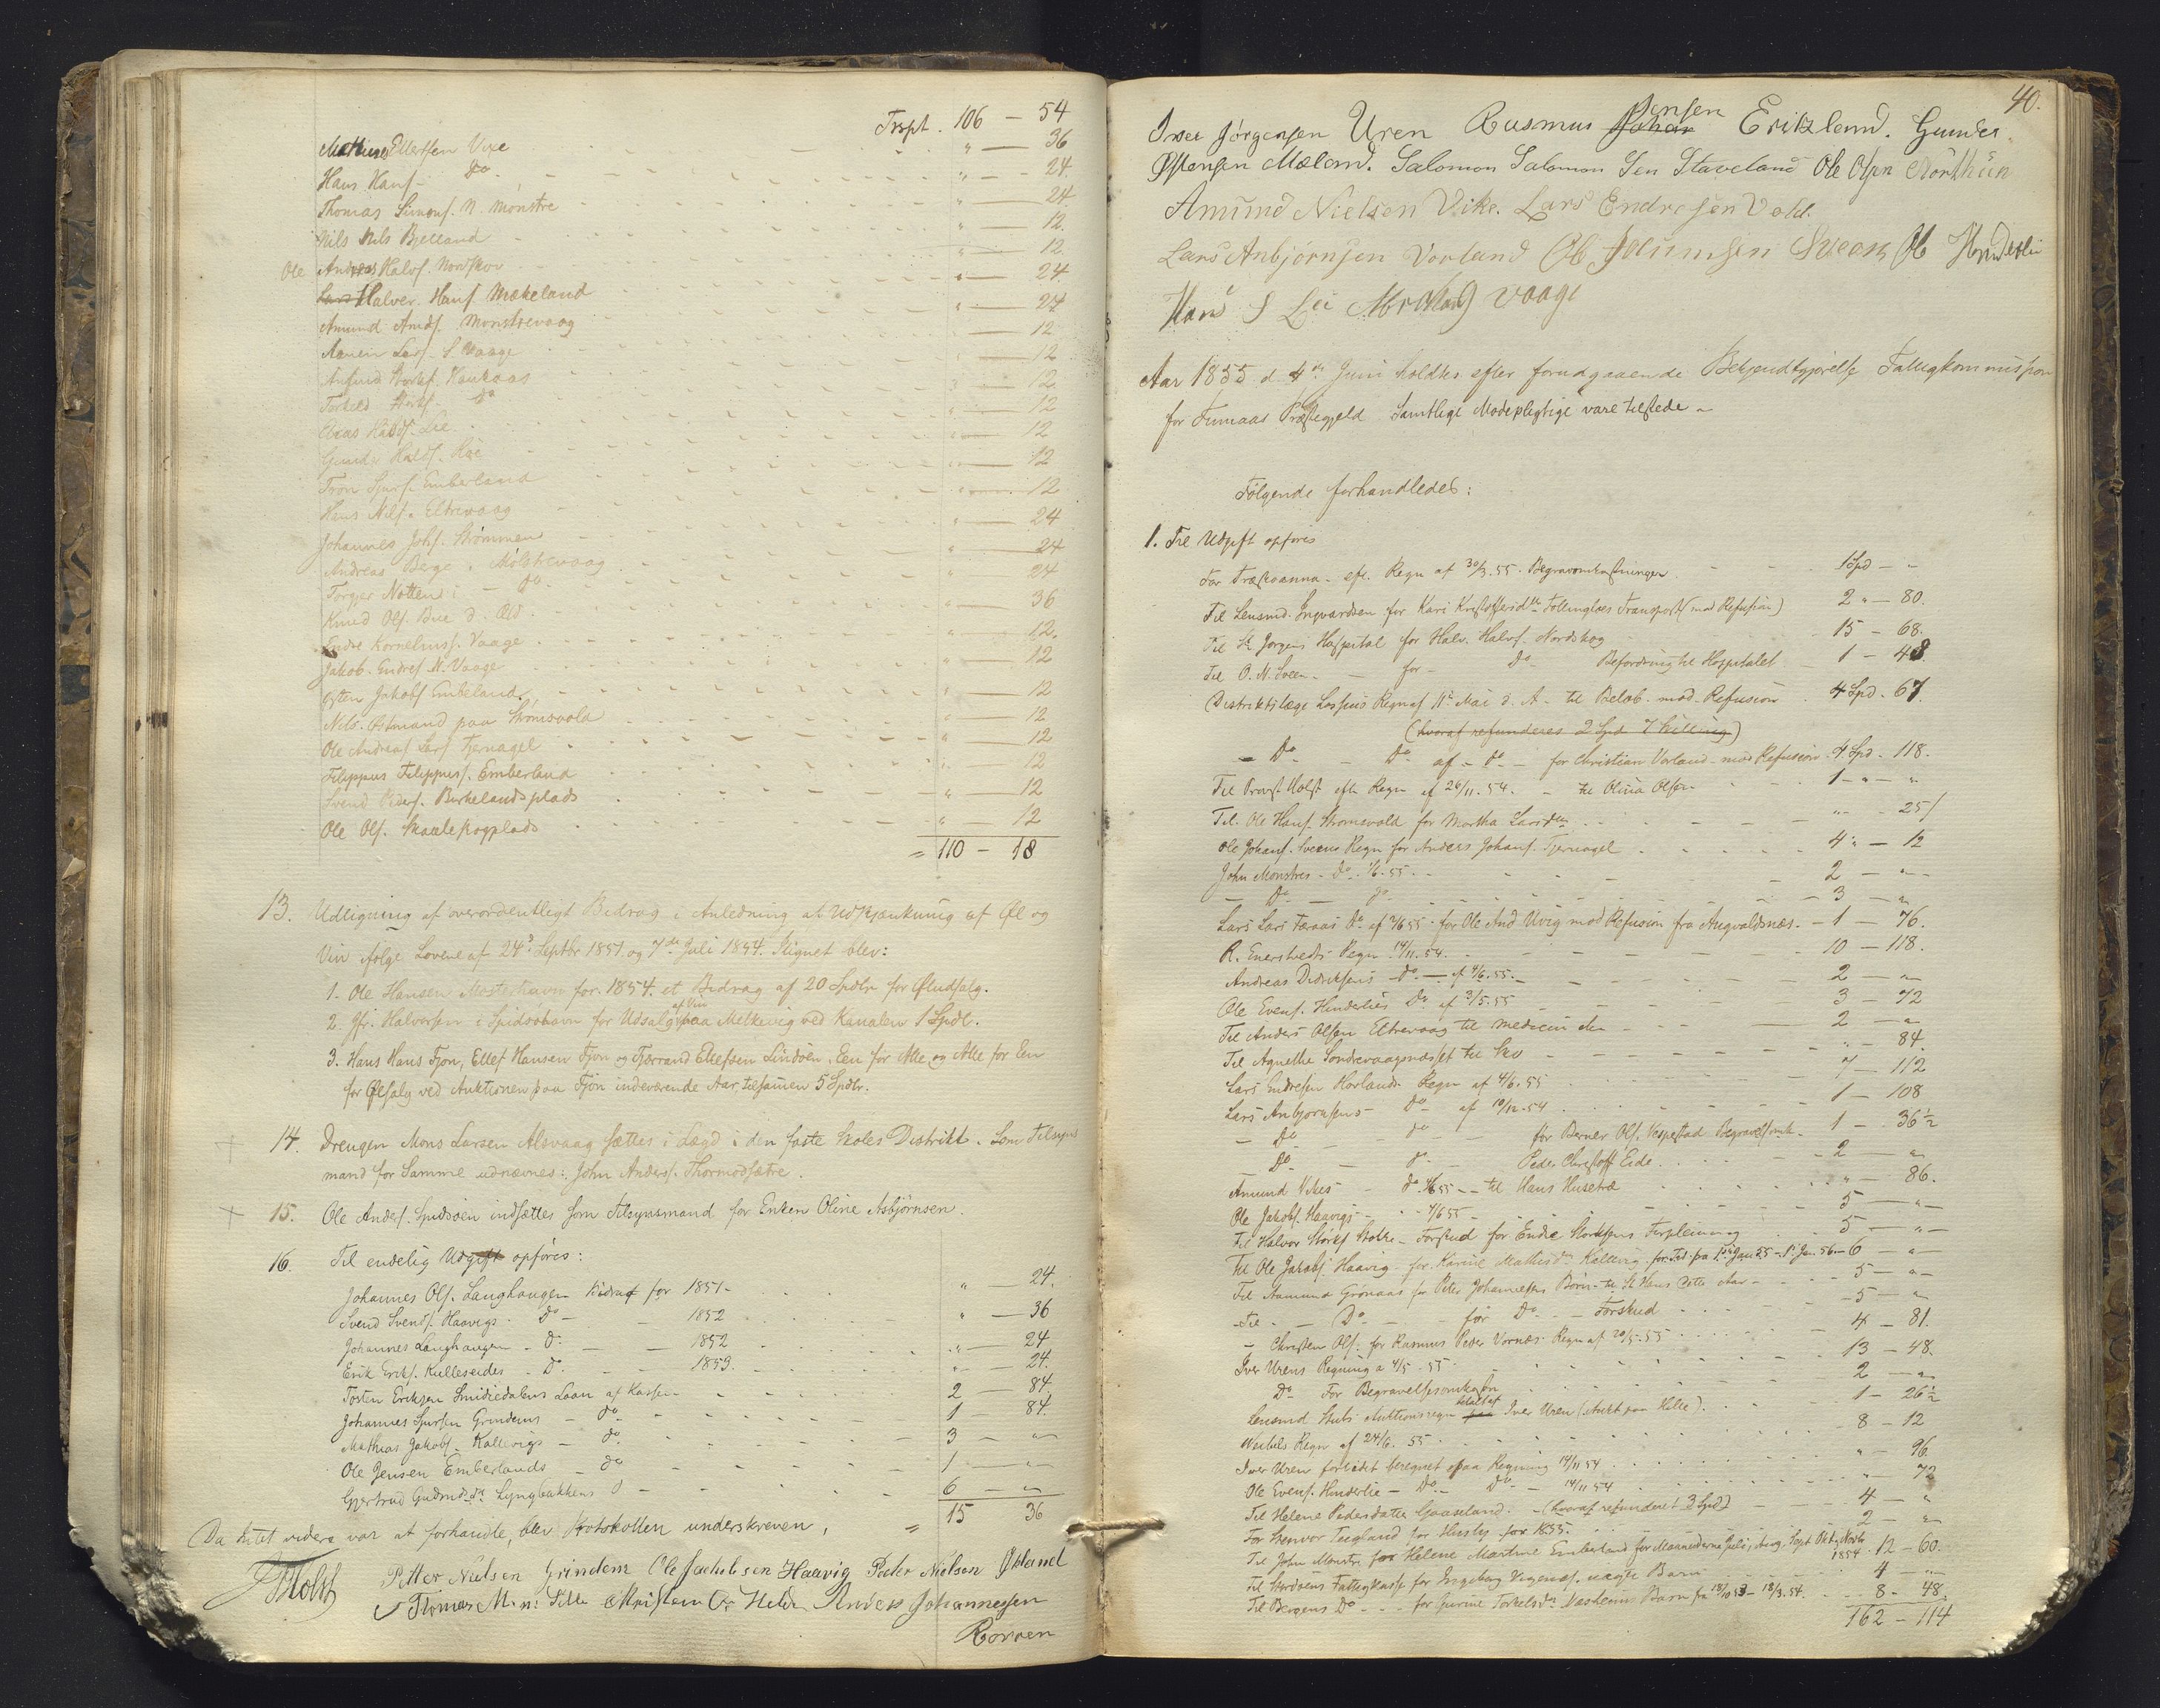 Trspt. 106 — 54
Mathias Ellertsen Vixe " — 36
Hans Hans. Do " — 24
Thomas Simons. N. Mønstre " — 24
Nils Nils Bjelland " — 12.
Ole Andreas Halvs. Nordskov " — 12
Halver Hans. Mækeland " — 24
Amund Amds. Monstrevaag " — 24
Lars. S. Vaage " — 12
Kaukaas " — 12
Torkeld Do " — 12
Lie " — 12
Gunder " — 12
Tron Sjurs. Emberland " — 12
Hans Nils. Eltrevaag " — 12
Johannes Johs. Strømmen " — 24
Andreas Berge i Mølstrevaag " — 24
Torger Notten i — do " — 24
Knud Ols. Bue d. Old " — 36
Endre Korneliuss. Vaage " — 12.
Jakob Endres. N. Vaage " — 12
Østen Jakobs Emberland " — 12
Nels Ostmand paa Strømsvold " — 12
Ole Andreas Lars Tjernagel " — 12
Filippus Filippuss. Emberland " — 12
Svend Peders. Birkelandsplads " — 12
Ole Ols. " — 12
= 110 — 18
13. Udligning af overordentligt Bidrag i Anledning at Udskjænkning af Øl og
Viin ifølge Lovene af 24de Septbr 1851 og 7de Juli 1854. Lignet blev:
1. Ole Hansen Mosterhavn for 1854. et Bidrag af 20 Spdlr for Øludsalg.
2. Gfr. Halversen i Spidsøhavn for Udsalg af Viin paa Melkevig ved Kanalen 1 Spdl.
3. Hans Hans Fjon, Ellef Hansen Fjon og Tjerrand Ellefsen Lindøen, Een for Alle og Alle for Een
for Ølsalg ved Auktionen paa Fjon indeværende Aar, tilsamen 5 Spdlr.
14. Drengen Mons Larsen Alsvaag sættes i Lægd i den faste Skoles Distrikt. Som Tilsyns
mand for Samme udnævnes: John Anders. Thormodsætre.
15. Ole Anders. Spidsøen indsættes som Tilsynsmand for Enken Oline Asbjørnsen.
16. Til endelig Udgift opføres:
Johannes Ols. Langhaugen Bidrag for 1851 " — 24.
Svend Svends. Haavigs Do — 1852 " — 36
Johannes Langhaugen — Do — 1852 " — 24
Erik Eriks. Kulleseides — Do — 1853. " — 24.
Torsten Eriksen Smidiedalens Laan af Kassen 2 — 84.
Johannes Sjursen Grindems — do 1 — 84.
Mathias Jakobs. Kallevigs — do 3 — "
Ole Jensen Emberlands — do 1 — "
Gjertrud Gudmdsdr. Lyngbakkens 6 — "
= 15 36
Da Intet videre var at forhandle, blev Protokollen underskreven,
JHolst Petter Nielsen Grindem Ole Jachobsen Haavig Peder Nielsen Økland
Thomas M. Christen O. Helde Anders Johannesen
Rørven
40.
Iver Jørgensen Uren Rasmus Jensen Eritzland. Gunder
Østensen Mæland. Salomon Salomon Sen Staveland Ole Olsen Nørthun
Amund Nielsen Vike. Lars Endresen Vold.
Lars Anbjørnsen Vorland Ob Johannsen Sveen Ob Hinderlie
Hans S Lie Vaage
Aar 1855 d. 4de Juni holdtes efter forudgaaende Bekjendtgjørelse Fattigkommission
for Finnaas Præstegjeld. Samtlige Mødepligtige vare tilstede.
Følgende forhandledes:
1. Til Udgift opføres
For Træskoanna. eft. Regn. af 30/3. 55. Begravomkostninger 1 Spd — "
Til Lensmd. Ingvardsen for Kari Kristoffersdtr Følling Transport (mod Refusion) 2 " — 80.
Til St Jørgens Hospital for Halv. Halvs. Nordskog 15 — 68.
Til O. N. Sveen — for — do Befordring til Hospitalet 1 — 48
Distriktslæge Lossius Regn af 11te Mai d. A. til Beløb mod Refusion 4 Spd. 67.
(hvoraf refunderes 2 Spd. 7 Skilling)
— Do — Do af — do — for Christian Vorland mod Refusion 4 Spd. 118.
Til Provst Holst efter Regn af 26/11. 54. — til Olina Olsen 1 — " — "
Til Ole Hans. Strømsvold for Martha Larsdtr " — 25
Ole Johans. Sveens Regn for Anders Johans. Tjernagel 4 " — 12
John Monstres — Do. 4/6. 55. 2 — "
— Do — Do 3 — "
Lars Lars Færaas Do af 2/6 55 for Ole And Urig mod Refusion fra Augvaldsnæs. 1 — 76.
R. Enerstvedts Regn 14/11. 54. 10 — 118.
Andreas Didriksens — do — af 4/6. 55. 2 — "
Ole Evens. Hinderlies Do af 3/5. 55 3 — 72
Til Anders Olsen Eltrevaag til Medicin 2 — "
Til Agnethe Søndrevaagsnæsset til Sko " — 84
Lars Endresen Horlands Regn af 4/6. 55 7 — 112
Lars Anbjørnsens — do af 10/12. 54 1 — 108
— Do — do — for Berner Ols. Vespestad Begravelsomk. 1 — 36½
Do — do — Peder Christoff Eide 2 — "
Amund Vikes — do 4/6 55 — til Hans Husetræ " — 86.
Ole Jakobs. Haavigs — 4/6 55 5 — "
Til Halvor Størks Stokke — Forskud for Endre Størksens Forpleining 5 — "
Til Ole Jakobs. Haavig for Karine Mathiasdtr Kallevig for Tid fra 1ste Jan 55 — 1 Jan. 56 — 6 — "
Til Aamund Grønaas for Peder Johannesens Børn til St Hans dette Aar 5 — "
Til — Do — for Do — Forskud 5 — "
— Christen Ols. for Rasmus Peder Vornæs Regn af 20/5. 55 4 — 81.
Iver Urens Regning a 4/5. 55 13 — 48.
Do For Begravelsesomkostn 2 — "
Lensmd Auktionsregn betalt af Iver Uren (Aukt. paa Helle) 1 — 26½
Regn af 24/6. 55 8 — 12
Iver Uren forlidet beregnet paa Regning 14/11 54 " — 96
Ole Evens. Hinderlie — Do — Do — 14/11 54 " — 72
Til Helene Pedersdatter Gaaseland. (hvoraf refunderet 3 Spd) 4 — "
For Steenvor Teigland for Huusly for 1855. 2 — "
Til John Monstre for Helene Martine Emberland for Maanederne Juli, Aug. Sept Okt. Novbr 1854 12 — 60.
Til Stordøens Fattigkasse for Ingeborg uægte Barn 4 — "
Til Bergens Do — for Gurine Torkelsdr Næsheims Barn fra 18/10 53 — 18/3. 54. 8 — 48.
162 — 114